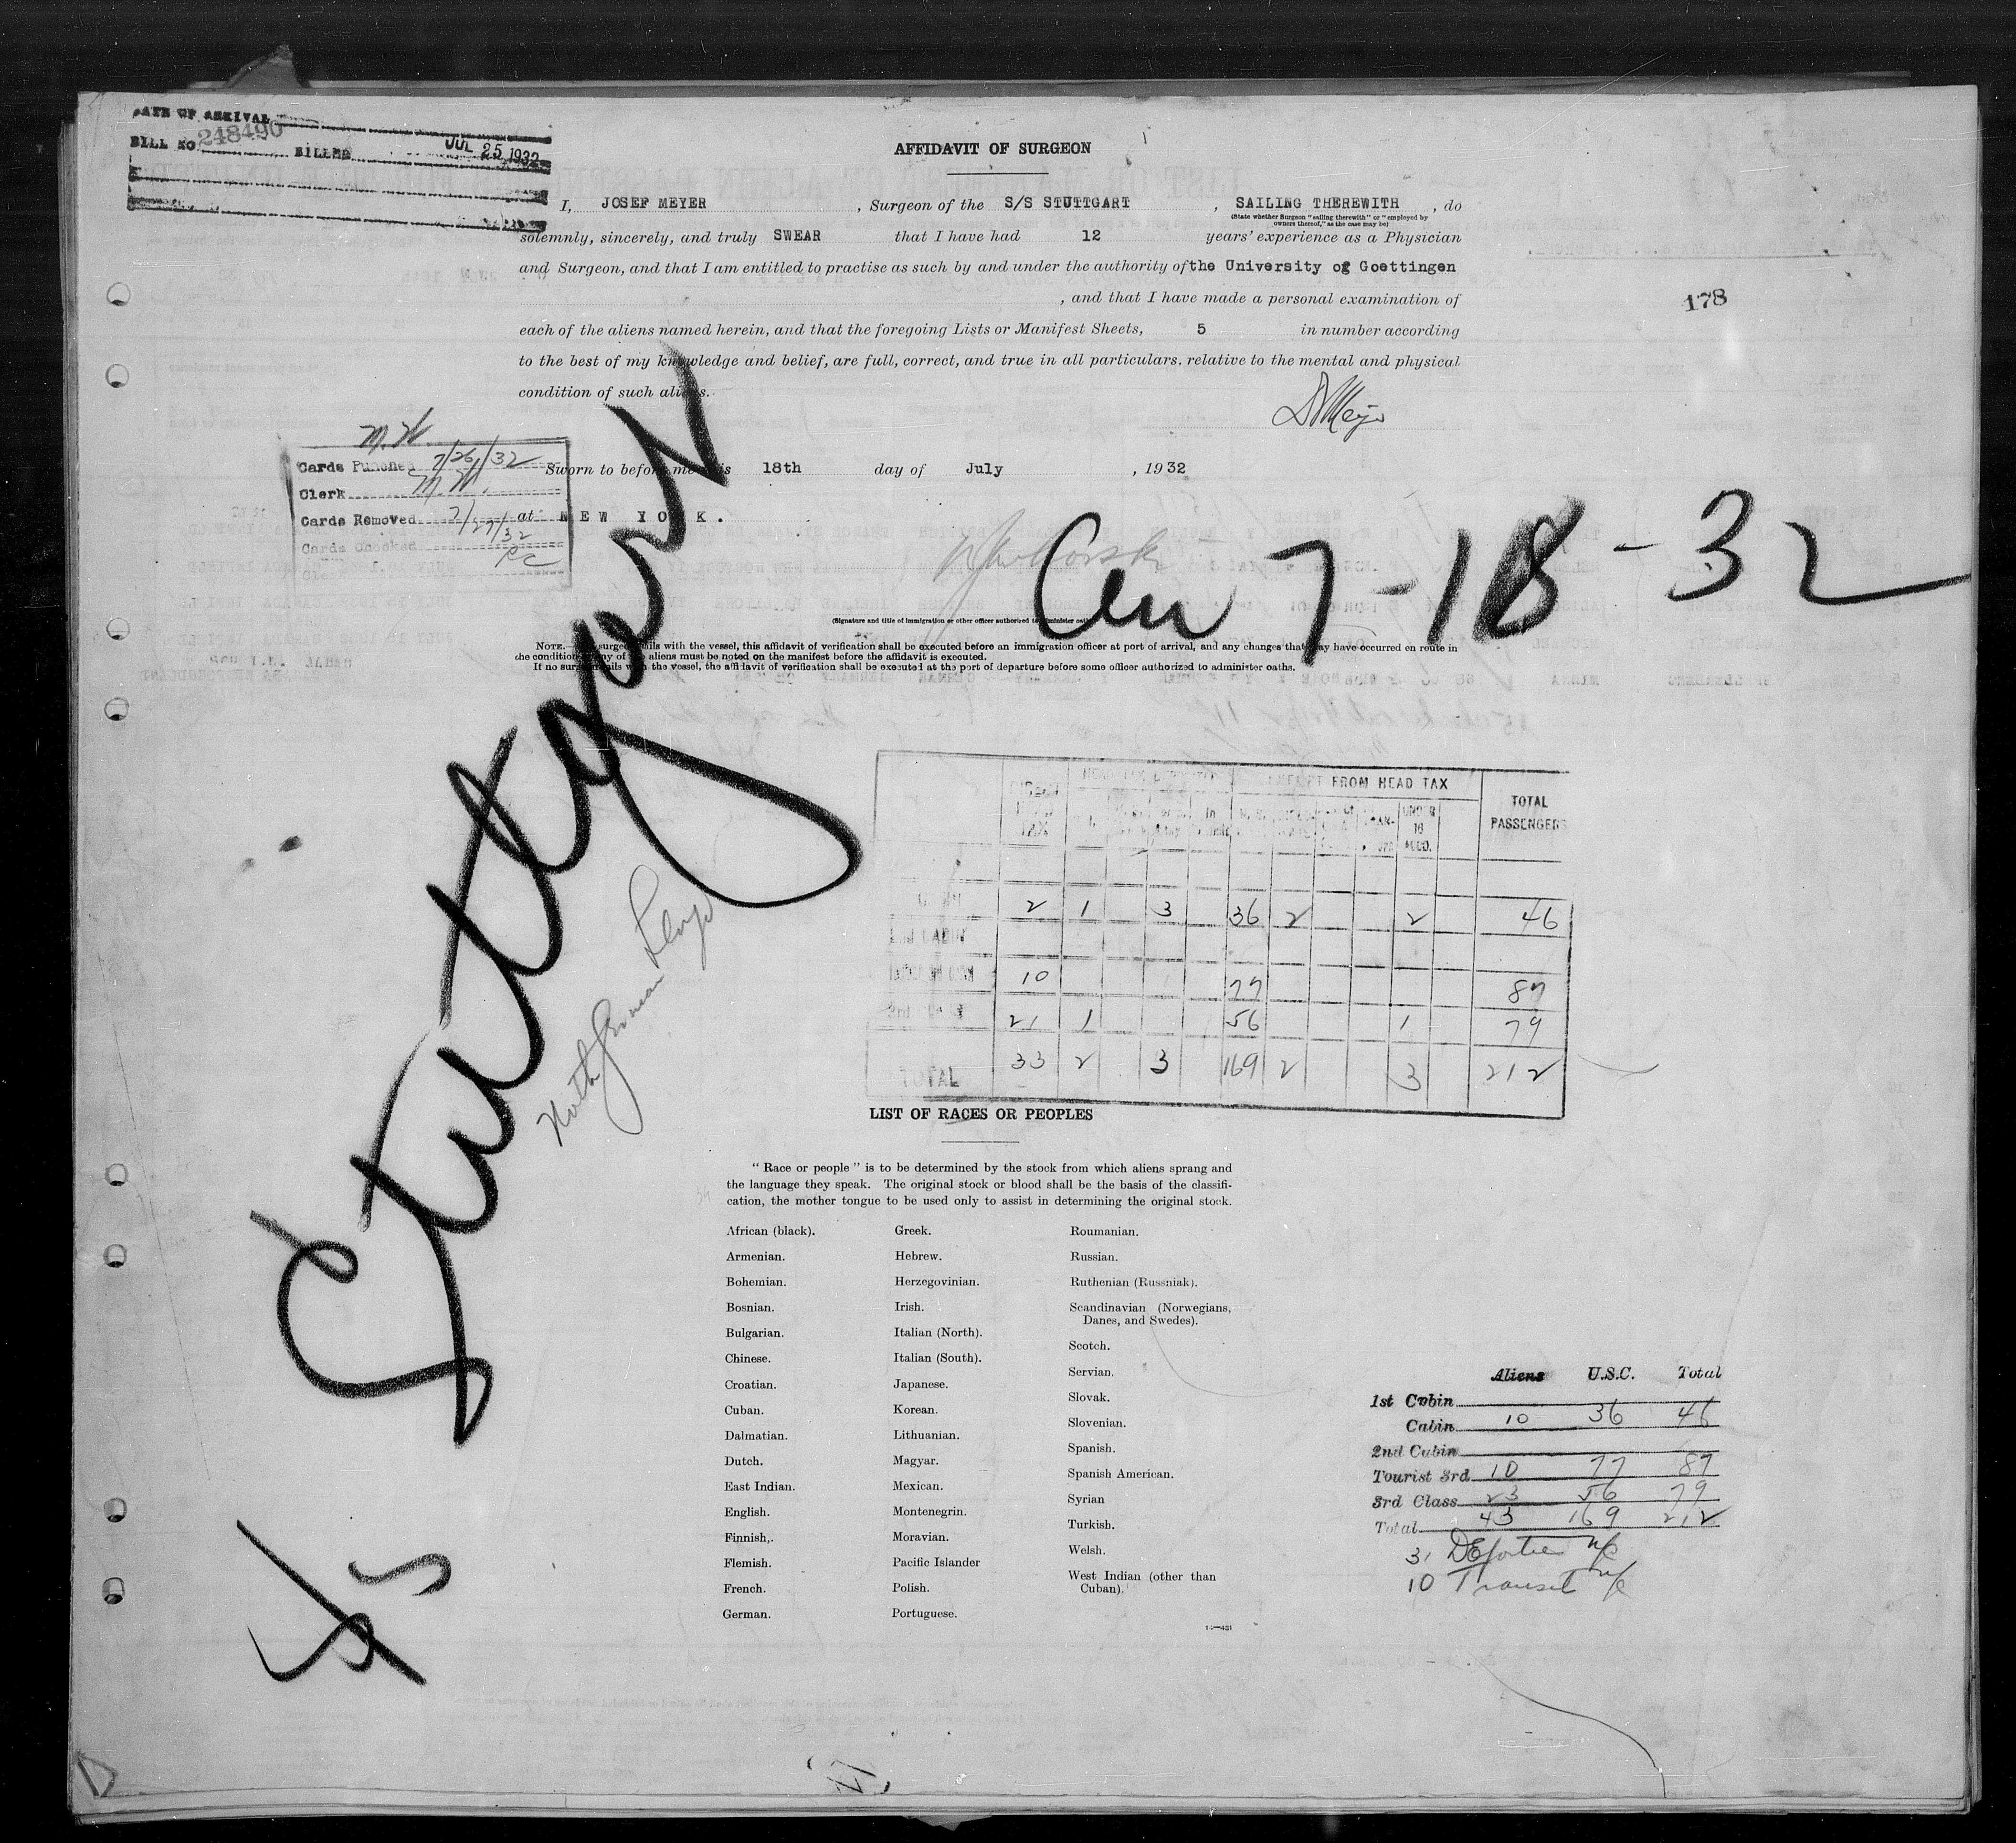 DATE OF ARRIVAL
BILL NO 248490 BILLED JUL 25 1932
AFFIDAVIT OF SURGEON
I, JOSEF MEYER, Surgeon of the S/S STUTTGART, SAILING THEREWITH, do
(State whether Surgeon "sailing therewith" or "employed by
owners thereof," as the case may be)
solemnly, sincerely, and truly SWEAR that I have had 12 years' experience as a Physician
and Surgeon, and that I am entitled to practise as such by and under the authority of the University of Goettingen
, and that I have made a personal examination of
178
each of the aliens named herein, and that the foregoing Lists or Manifest Sheets, 5 in number according
to the best of my knowledge and belief, are full, correct, and true in all particulars. relative to the mental and physical
condition of such aliens.
Dr Meyer
M.W.
Cards Punched 7/26/32
Clerk M.W.
Cards Removed 7/27/32
Cards Checked RC
Sworn to before me this 18th day of July, 1932
at NEW YORK.
Arr 7-18-32
(Signature and title of immigration or other officer authorized to administer oaths)
NOTE.—If surgeon sails with the vessel, this affidavit of verification shall be executed before an immigration officer at port of arrival, and any changes that may have occurred en route in
the condition of any of the aliens must be noted on the manifest before the affidavit is executed.
If no surgeon sails with the vessel, the affidavit of verification shall be executed at the port of departure before some officer authorized to administer oaths.
SS Stuttgart
North German Lloyd
DIRECT HEAD TAX HEAD TAX DEPOSITS EXEMPT FROM HEAD TAX TOTAL PASSENGERS
In UNDER 16 ACCO.
2 1 3 36 2 2 46
2nd CABIN
10 77 87
3rd CLASS 21 1 56 1 79
TOTAL 33 2 3 169 2 3 212
LIST OF RACES OR PEOPLES
"Race or people" is to be determined by the stock from which aliens sprang and
the language they speak. The original stock or blood shall be the basis of the classifi-
cation, the mother tongue to be used only to assist in determining the original stock.
African (black).
Armenian.
Bohemian.
Bosnian.
Bulgarian.
Chinese.
Croatian.
Cuban.
Dalmatian.
Dutch.
East Indian.
English.
Finnish,.
Flemish.
French.
German.
Greek.
Hebrew.
Herzegovinian.
Irish.
Italian (North).
Italian (South).
Japanese.
Korean.
Lithuanian.
Magyar.
Mexican.
Montenegrin.
Moravian.
Pacific Islander
Polish.
Portuguese.
Roumanian.
Russian.
Ruthenian (Russniak).
Scandinavian (Norwegians,
Danes, and Swedes).
Scotch.
Servian.
Slovak.
Slovenian.
Spanish.
Spanish American.
Syrian
Turkish.
Welsh.
West Indian (other than
Cuban).
14—431
Aliens U.S.C. Total
1st Cabin
Cabin 10 36 46
2nd Cabin
Tourist 3rd 10 77 87
3rd Class 23 56 79
Total 43 169 212
31
10 Transit